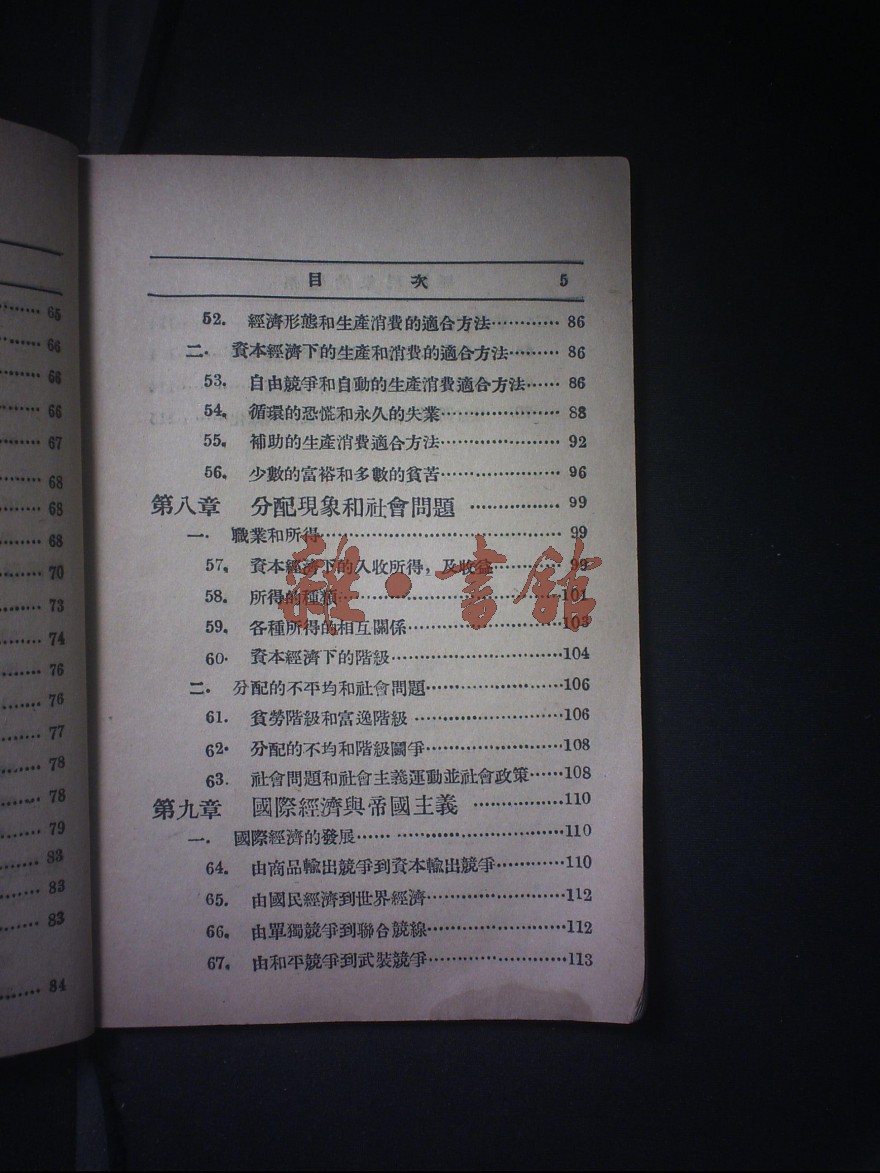 65
66
66
66
67
68
68
68
70
73
74
76
76
77
78
78
79
83
83
83
84
目 次 5
52. 經濟形態和生產消費的適合方法………… 86
二. 資本經濟下的生產和消費的適合方法……… 86
53. 自由競爭和自動的生產消費適合方法…… 86
54. 循環的恐慌和永久的失業………………… 88
55. 補助的生產消費適合方法………………… 92
56. 少數的富裕和多數的貧苦………………… 96
第八章 分配現象和社會問題 …………… 99
一. 職業和所得……………………………… 99
57. 資本經濟下的入收所得，及收益………… 99
58. 所得的種類………………………………101
59. 各種所得的相互關係……………………103
60. 資本經濟下的階級………………………104
二. 分配的不平均和社會問題…………………106
61. 貧勞階級和富逸階級 ……………………106
62. 分配的不均和階級鬭爭…………………108
63. 社會問題和社會主義運動並社會政策……108
第九章 國際經濟與帝國主義 ……………110
一. 國際經濟的發展…… …………………110
64. 由商品輸出競爭到資本輸出競爭…………110
65. 由國民經濟到世界經濟…………………112
66. 由單獨競爭到聯合競線…………………112
67. 由和平競爭到武裝競爭…………………113
雜·書館